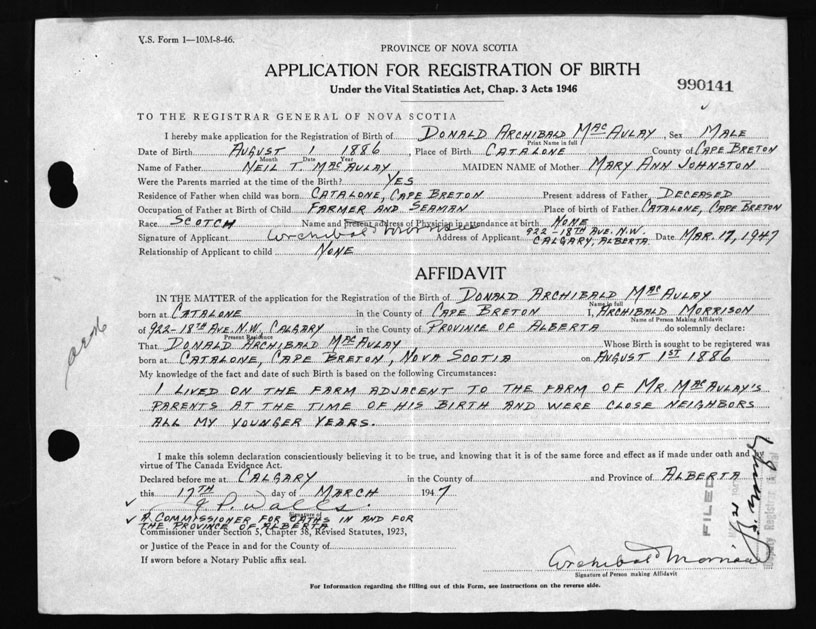 V.S. Form 1—10M-8-46.
PROVINCE OF NOVA SCOTIA
APPLICATION FOR REGISTRATION OF BIRTH
Under the Vital Statistics Act, Chap. 3 Acts 1946
990141
TO THE REGISTRAR GENERAL OF NOVA SCOTIA
I hereby make application for the Registration of Birth of DONALD ARCHIBALD MACAULAY, Sex MALE
Print Name in full
Date of Birth AUGUST 1 1886, Place of Birth CATALONE County of CAPE BRETON
Month Date Year
Name of Father NEIL T. MACAULAY MAIDEN NAME of Mother MARY ANN JOHNSTON
Were the Parents married at the time of the Birth? YES
Residence of Father when child was born CATALONE, CAPE BRETON Present address of Father DECEASED
Occupation of Father at Birth of Child FARMER AND SEAMAN Place of birth of Father CATALONE, CAPE BRETON
Race SCOTCH Name and present address of Physician in attendance at birth NONE
Signature of Applicant Archibald Morrison Address of Applicant 922-18TH AVE. N.W. CALGARY, ALBERTA Date MAR. 17, 1947
Relationship of Applicant to child NONE
AFFIDAVIT
IN THE MATTER of the application for the Registration of the Birth of DONALD ARCHIBALD MACAULAY
Name in full
born at CATALONE in the County of CAPE BRETON I, ARCHIBALD MORRISON
Name of Person Making Affidavit
of 922-18TH AVE. N.W. CALGARY in the County of PROVINCE OF ALBERTA do solemnly declare:
Present Residence
That DONALD ARCHIBALD MACAULAY Whose Birth is sought to be registered was
born at CATALONE, CAPE BRETON, NOVA SCOTIA on AUGUST 1ST 1886
My knowledge of the fact and date of such Birth is based on the following Circumstances:
I LIVED ON THE FARM ADJACENT TO THE FARM OF MR. MACAULAY'S
PARENTS AT THE TIME OF HIS BIRTH AND WERE CLOSE NEIGHBORS
ALL MY YOUNGER YEARS.
I make this solemn declaration conscientiously believing it to be true, and knowing that it is of the same force and effect as if made under oath and
virtue of The Canada Evidence Act.
Declared before me at CALGARY in the County of and Province of ALBERTA
this 17TH day of MARCH 1947
J. P. Walls.
Signature of
A COMMISSIONER FOR OATHS IN AND FOR
THE PROVINCE OF ALBERTA
Commissioner under Section 5, Chapter 38, Revised Statutes, 1923,
or Justice of the Peace in and for the County of
If sworn before a Notary Public affix seal.
FILED
Deputy Registrar General
Archibald Morrison
Signature of Person making Affidavit
For Information regarding the filling out of this Form, see instructions on the reverse side.